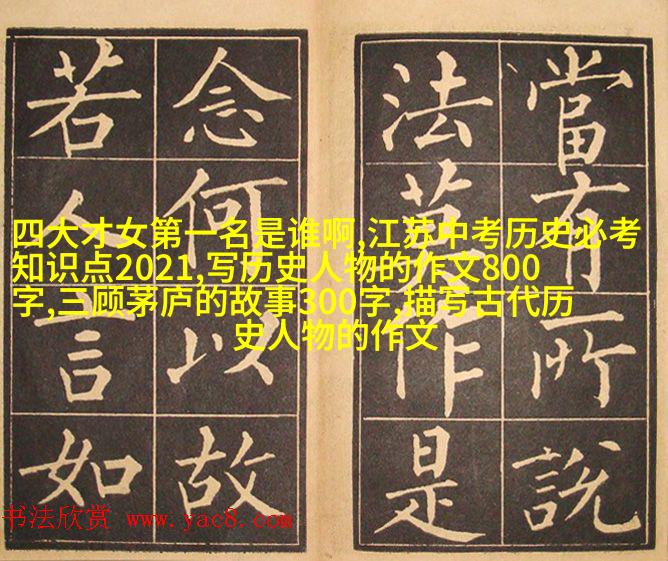 當有所說
法莫作是
念何以故
若人言如
四大才女第一名是谁啊,江苏中考历史必考
知识点2021,写历史人物的作文800
字,三顾茅庐的故事300字,描写古代历
史人物的作文
书法欣赏 www.yac8.com